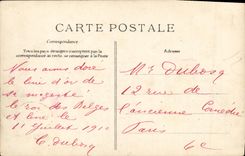 CARTE POSTALE
Correspondance
Adresse
Nous avons dore
le lion d'or de
sa majesté
le roi des Belges
et lui le
11 Juillet 1911
C Dubosq
Mr Dubosq
12 rue de
l'ancienne Comédie
Paris
6e